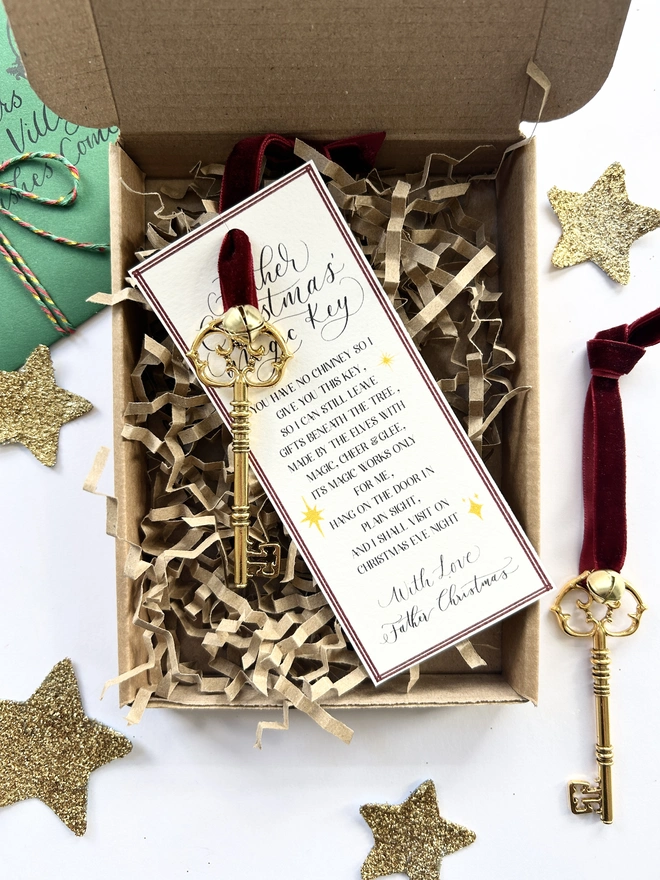 Villa
Come
Father
Christmas'
Magic Key
YOU HAVE NO CHIMNEY SO I
GIVE YOU THIS KEY,
SO I CAN STILL LEAVE
GIFTS BENEATH THE TREE,
MADE BY THE ELVES WITH
MAGIC, CHEER & GLEE,
ITS MAGIC WORKS ONLY
FOR ME,
HANG ON THE DOOR IN
PLAIN SIGHT,
AND I SHALL VISIT ON
CHRISTMAS EVE NIGHT
With Love
Father Christmas